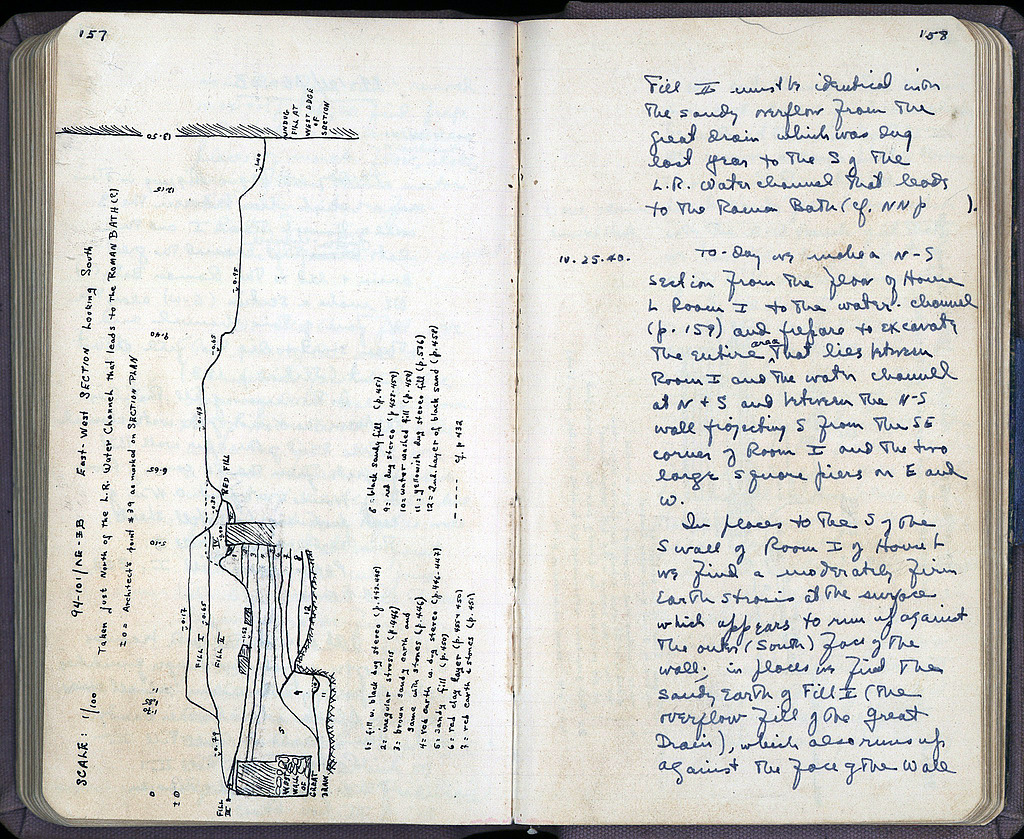 157
SCALE: 1/100
94-101/ΛΕ-ΞΒ East-West SECTION Looking South
Taken just North of the L.R. Water Channel that leads to the ROMAN BATH (?)
±0 = Architect's point #39 as marked on SECTION PLAN
UNDUG
FILL AT
WEST EDGE
OF
SECTION
RED FILL
FILL I
FILL II
-0.17
-0.65
-0.79
-0.43
-0.65
-0.95
0
±0
WEST
WALL
OF
GREAT
DRAIN
1 = fill w. black dug stereo
2 = irregular strosis (p. 446)
3 = brown sandy earth and
same with stones (p. 446)
4 = red earth w. dug stereo (p. 446-447)
5 = sandy fill (p. 450)
6 = red clay layer
7 = red earth & stones (p. 451)
8 = black sandy fill (p. 451)
9 = red dug stereo
10 = water washed fill
11 = yellowish dug stereo fill (p. 536)
12 = 2nd. layer of black sand
cf. p. 432
158
Fill II must be identical with
the sandy overflow from the
great drain which was dug
last year to the S of the
L.R. Water channel that leads
to the Roman Bath (cf. NN p ).
10.25.40. To-day we make a N-S
section from the floor of House
L Room I to the water-channel
(p. 159) and prepare to excavate
the entire area that lies between
Room I and the water channel
at N + S and between the N-S
wall projecting S from the SE
corner of Room I and the two
large square piers on E and
W.
In places to the S of the
S wall of Room I of House L
we find a moderately firm
Earth strosis at the surface
which appears to run up against
the outer (South) face of the
wall; in places we find the
sandy Earth of Fill II (the
overflow fill of the Great
Drain), which also runs up
against the face of the wall